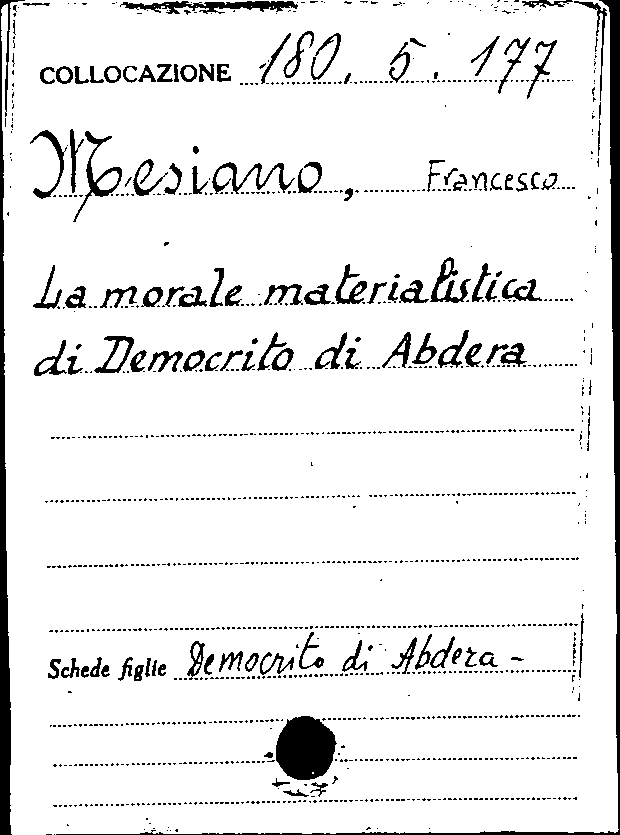 COLLOCAZIONE 180. 5. 177
Mesiano, Francesco
La morale materialistica
di Democrito di Abdera
Schede figlie Democrito di Abdera -